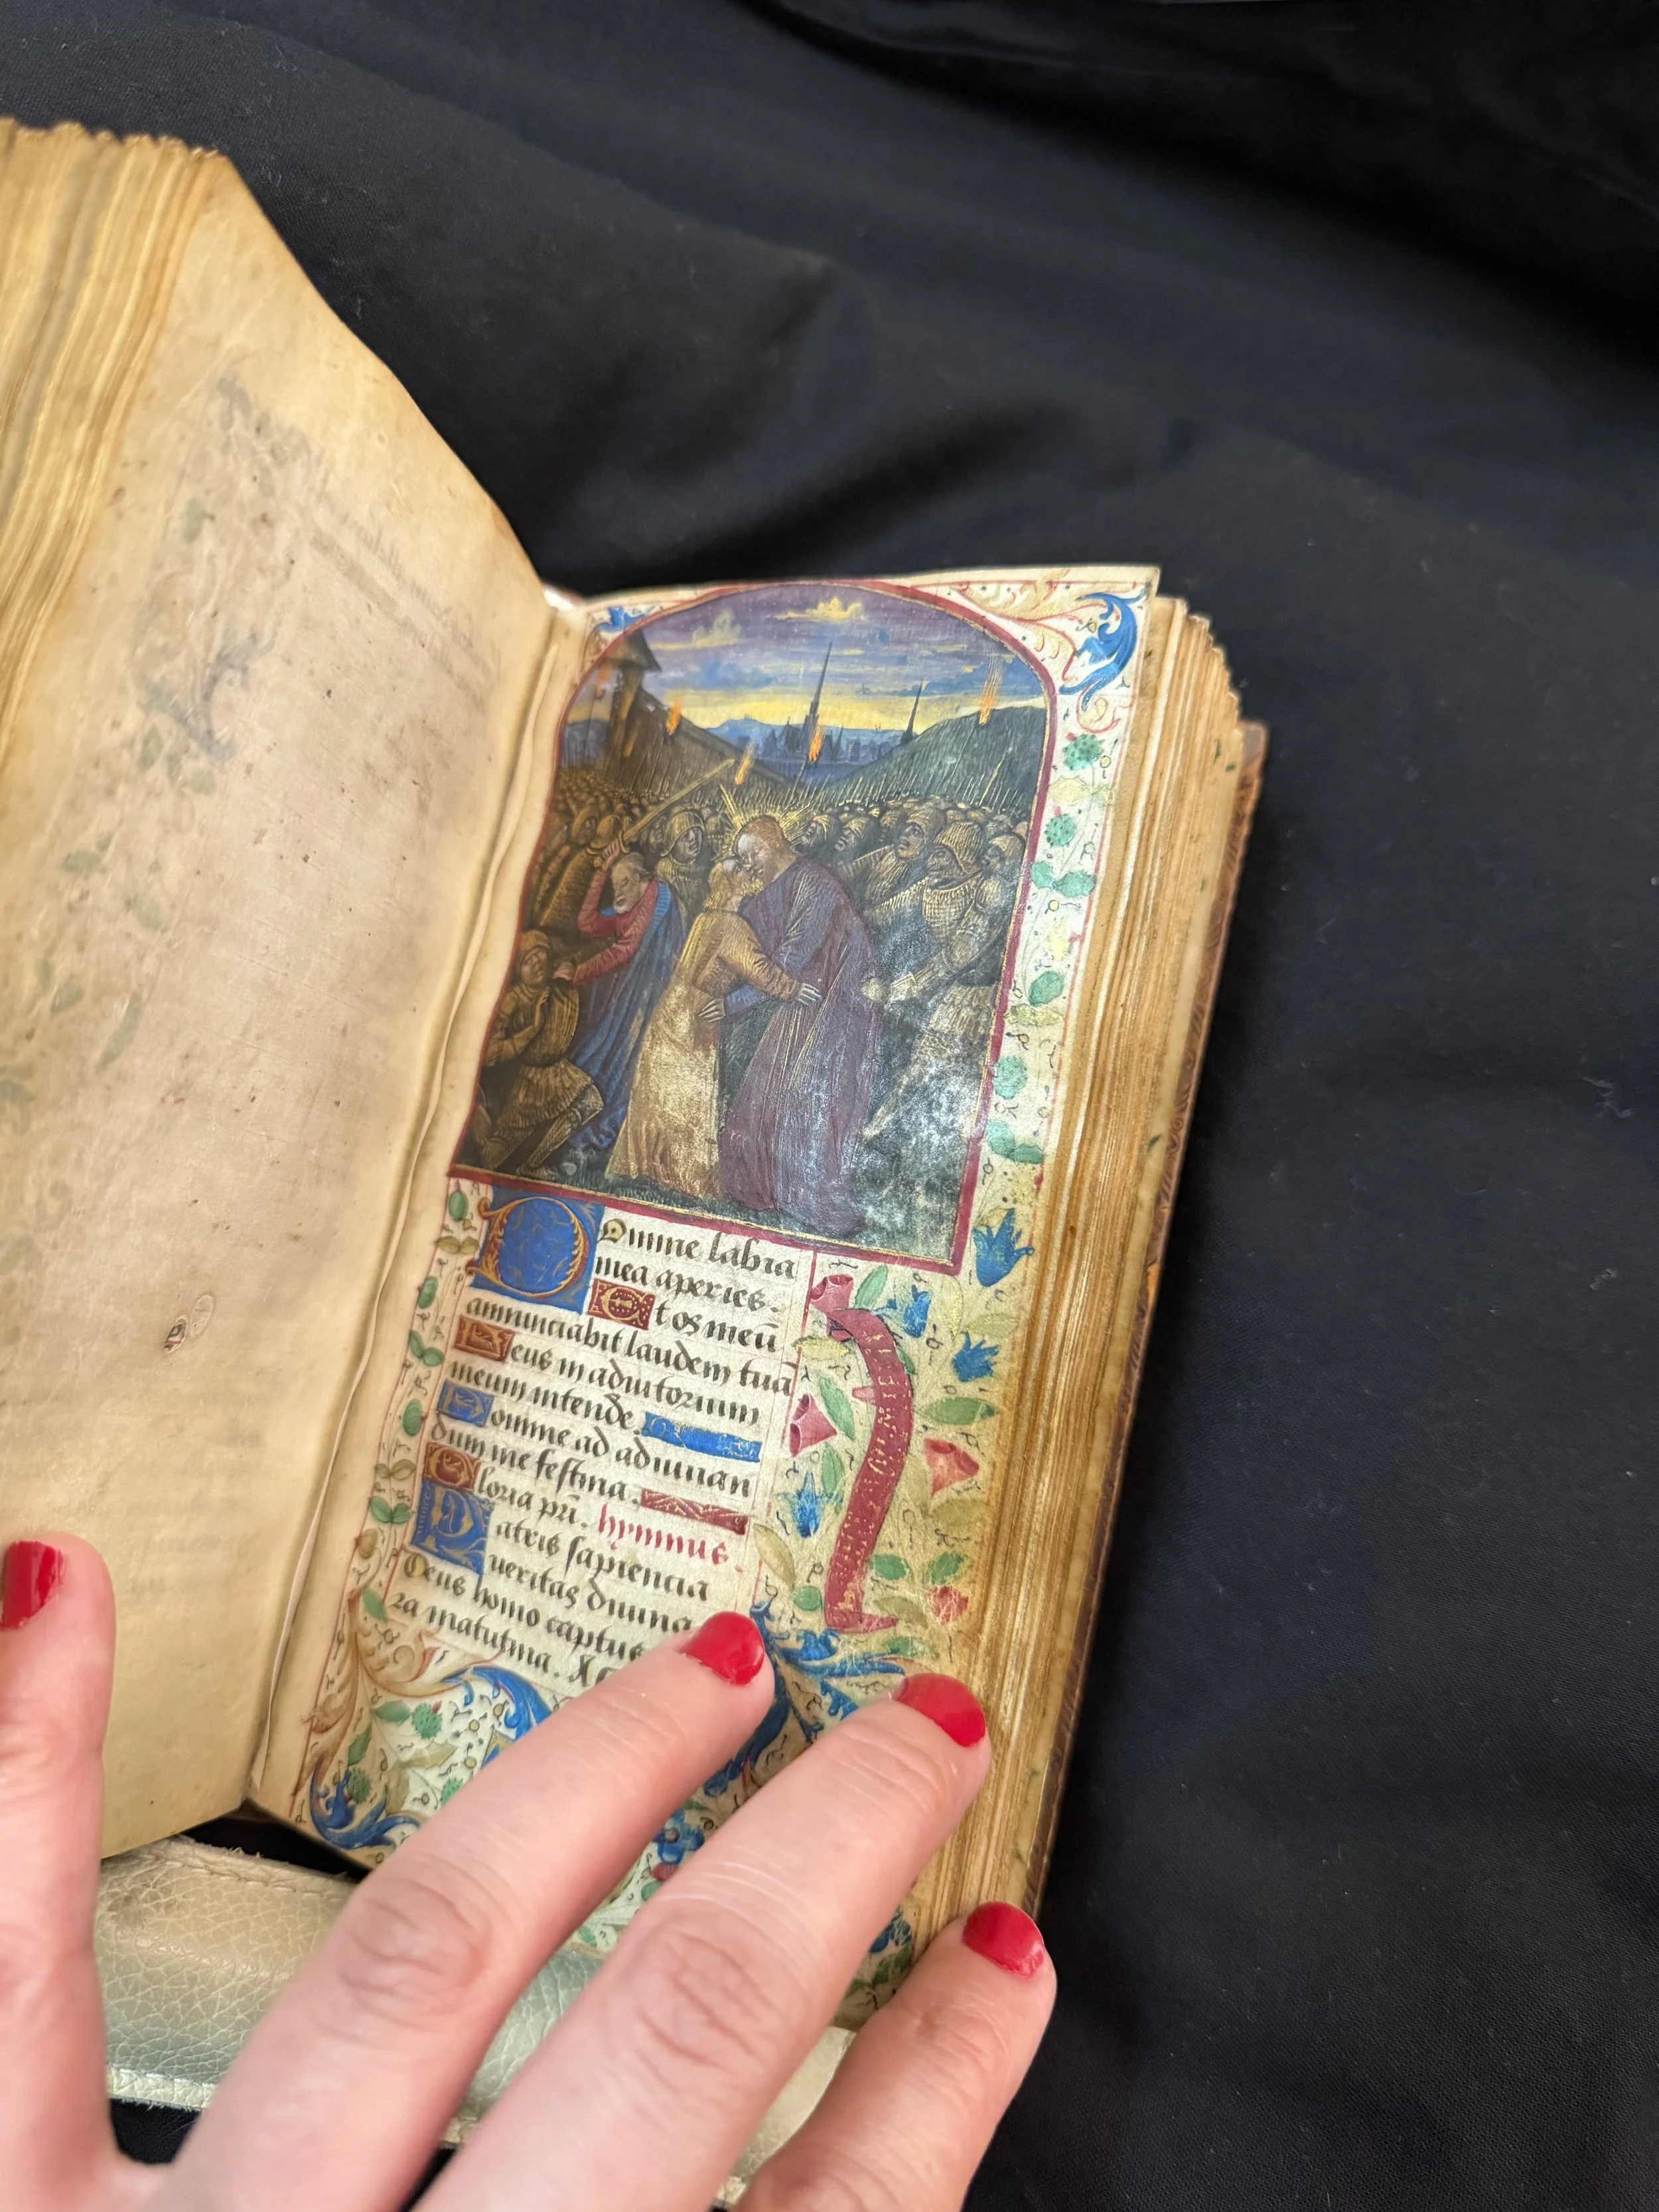 Domine labia
mea aperies.
Et os meū
annunciabit laudem tuā
Deus in adiutorium
meum intende.
Domine ad adiuuan
dum me festina.
Gloria pr̄i. hymnus
Patris sapiencia
ueritas diuina
Deus homo captus
ra matutina. A